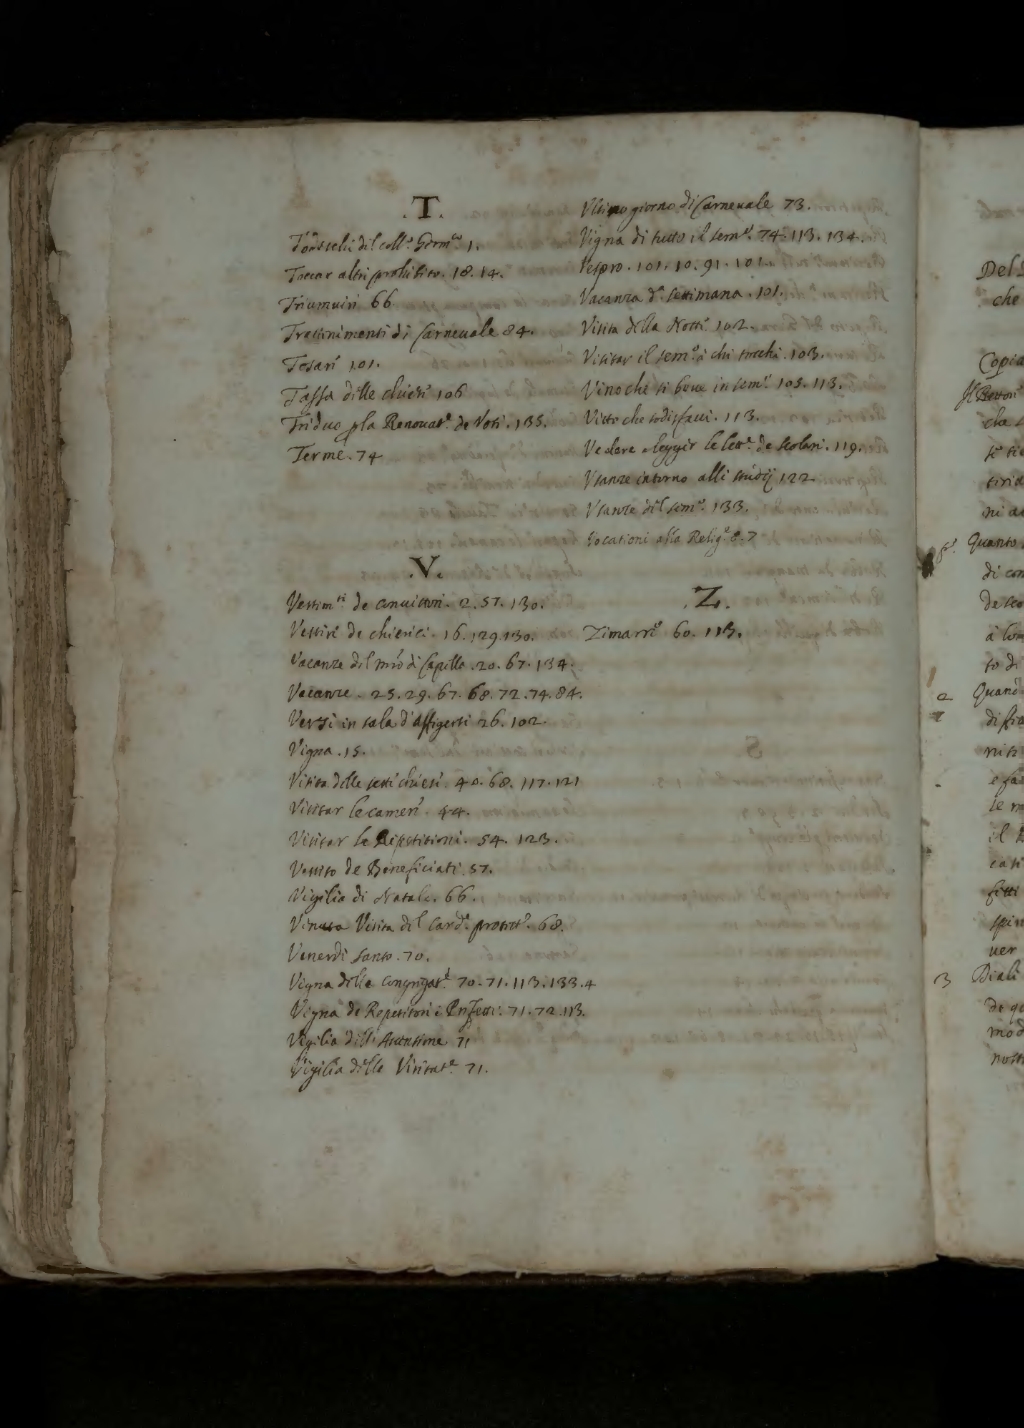 .T.
del coll.º Germ.co 1.
Toccar altri prohibito. 18. 14.
Triumuiri 66
Trattenimenti di Carneuale 84.
Tesari 101.
Tassa delle chiesi 106
Triduo pla Renouat.e de Voti. 135.
Terme. 74
.V.
Vestim.ti de conuittori. 2. 57. 130.
Vestiri de chierici. 16. 129. 130.
Vacanze del di Capello. 20. 67. 134.
Vacanze. 25. 29. 67. 68. 72. 74. 84.
Versi in sala d'affigersi 26. 102
Vigna. 15.
Visita delle setti chiesi. 40. 68. 117. 121
Visitar le cameri. 44.
Visitar le Repetitioni. 54. 123.
Vestito de Beneficiati. 57.
Vigilia di Natale. 66.
Venuta Visita del Card. protett.e 68.
Venerdi santo. 70.
Vigna delle congregat.i 70. 71. 113. 133. 4
Vigna de Repetitori e Prefetti. 71. 72. 113.
Vigilia dell' Ascensione 71
Vigilia delle Visitat.e 71.
Vltimo giorno di Carneuale 73.
Vigna di tutto il sem.º 74. 113. 134.
Vespro. 101. 10. 91. 101.
Vacanza d.a settimana. 101.
Visita della Notti 102.
Visitar il sem.º à chi tocchi. 103.
Vino che si beue in sem.º 105. 113.
Vitto che sodisfacci. 113.
Vedere e leggir le lett.e de scolari. 119.
Vsanze intorno alli studij 122
Vsanze del sem.º 133.
Vocationi alla Relig.e 8. 7
.Z.
Zimarre 60. 115.
Del
che
Copia
che
Quanto
di con
to di
2 Quando
e fa
il
spiri
uer
3
nostr